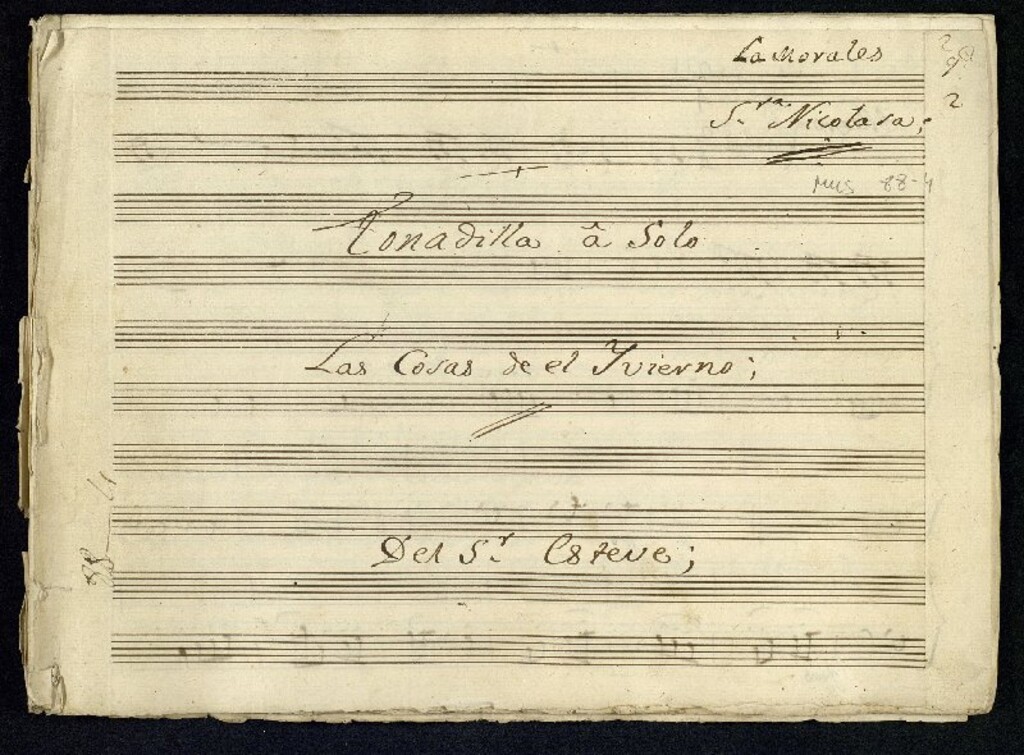 La Morales
S.ra Nicolasa;
Mus 88-4
Tonadilla â Solo
Las Cosas de el Yvierno;
Del S.r Esteve;